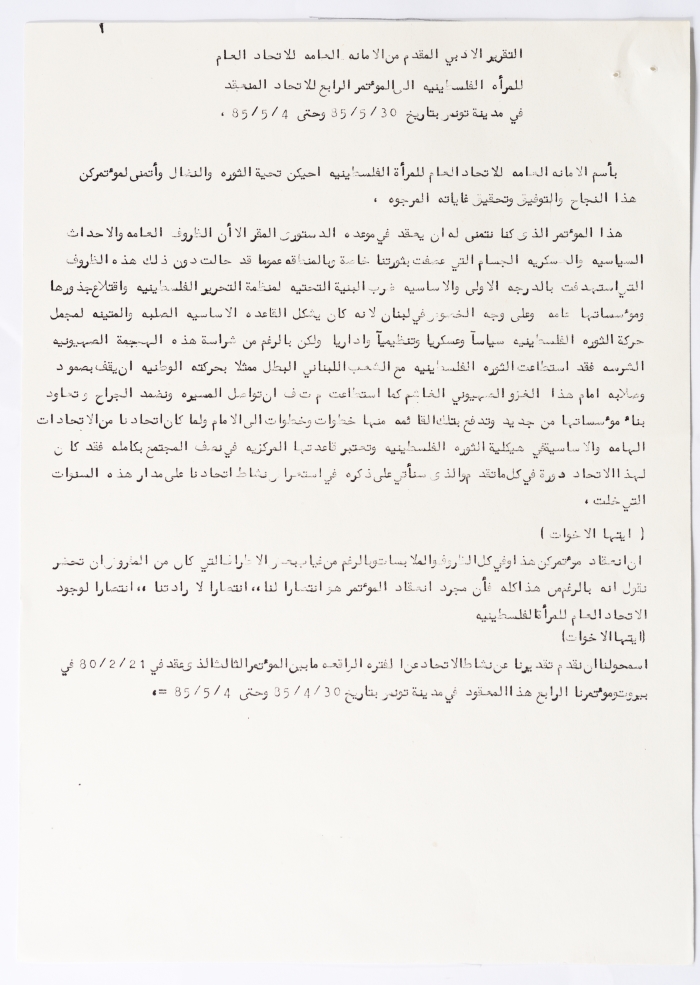 ١
التقرير الادبي المقدم من الامانه العامه للاتحاد العام
للمرأه الفلسطينيه الى المؤتمر الرابع للاتحاد المنعقد
في مدينة تونس بتاريخ 85/5/30 وحتى 85/5/4 ،
بأسم الامانه العامه للاتحاد العام للمرأة الفلسطينيه احيكن تحية الثوره والنضال وأتمنى لموءتمركن
هذا النجاح والتوفيق وتحقيق غاياته المرجوه ،
هذا الموءتمر الذى كنا نتمنى له ان يعقد في موعده الدستورى المقر الا أن الظروف العامه والاحداث
السياسيه والعسكريه الجسام التي عصفت بثورتنا خاصة وبالمنطقه عموما قد حالت دون ذلك هذه الظروف
التي استهدفت بالدرجه الاولى والاساسيه ضرب البنية التحتيه لمنظمة التحرير الفلسطينيه واقتلاع جذورها
وموءسساتها عامه وعلى وجه الخصوص في لبنان لانه كان يشكل القاعده الاساسيه الصلبه والمتينه لمجمل
حركة الثوره الفلسطينيه سياسآ وعسكريا وتنظيميآ واداريا ولكن بالرغم من شراسة هذه الهجمة الصهيونيه
الشرسه فقد استطاعت الثوره الفلسطينيه مع الشعب اللبناني البطل ممثلا بحركته الوطنيه ان يقف بصمود
وصلابه امام هذا الغزو الصهيوني الغاشم كما استطاعت م ت ف ان تواصل المسيره وتضمد الجراح وتعاود
بناء موءسساتها من جديد وتدفع بتلك القائمه منها خطوات وخطوات الى الامام ولما كان اتحادنا من الاتحادات
الهامه والاساسية في هيكلية الثوره الفلسطينيه وتعتبر قاعدتها المركزيه في نصف المجتمع بكامله فقد كان
لهذا الاتحاد دورة في كل ماتقدم والذى سنأتي على ذكره في استمرار نشاط اتحادنا على مدار هذه السنوات
التي خلت ،
( ايتها الاخوات )
ان انعقاد موءتمركن هذا وفي كل الظروف والملابسات وبالرغم من غياب بعض الاطراف التي كان من المفروض ان تحضر
نقول انه بالرغم من هذا كله فأن مجرد انعقاد الموءتمر هو انتصارا لنا ،، انتصارا لارادتنا ،، انتصارا لوجود
الاتحاد العام للمرأة الفلسطينيه
(ايتها الاخوات)
اسمحولنا ان نقدم تقديرنا عن نشاط الاتحاد عن الفتره الواقعه مابين الموءتمر الثالث الذى عقد في 80/2/21 في
بيروت وموءتمرنا الرابع هذا المعقود في مدينة تونس بتاريخ 85/4/30 وحتى 85/5/4 =،